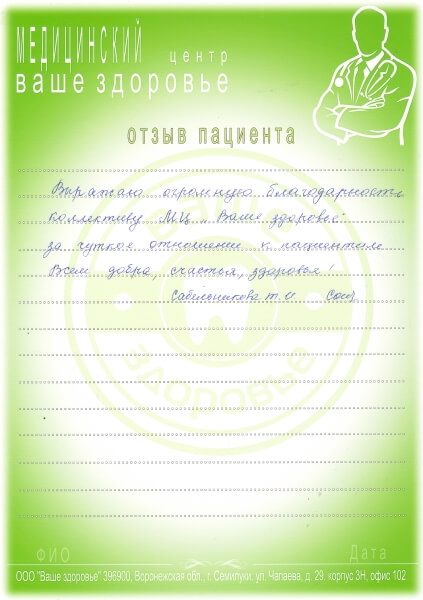 МЕДИЦИНСКИЙ центр
ваше здоровье
отзыв пациента
Выражаю огромную благодарность
коллективу МЦ „Ваше здоровье"
за чуткое отношение к пациентам.
Всем добра, счастья, здоровья!
Сабельникова Т. И.
здоровье
ФИО Дата
ООО "Ваше здоровье" 396900, Воронежская обл., г. Семилуки, ул. Чапаева, д. 29, корпус 3Н, офис 102